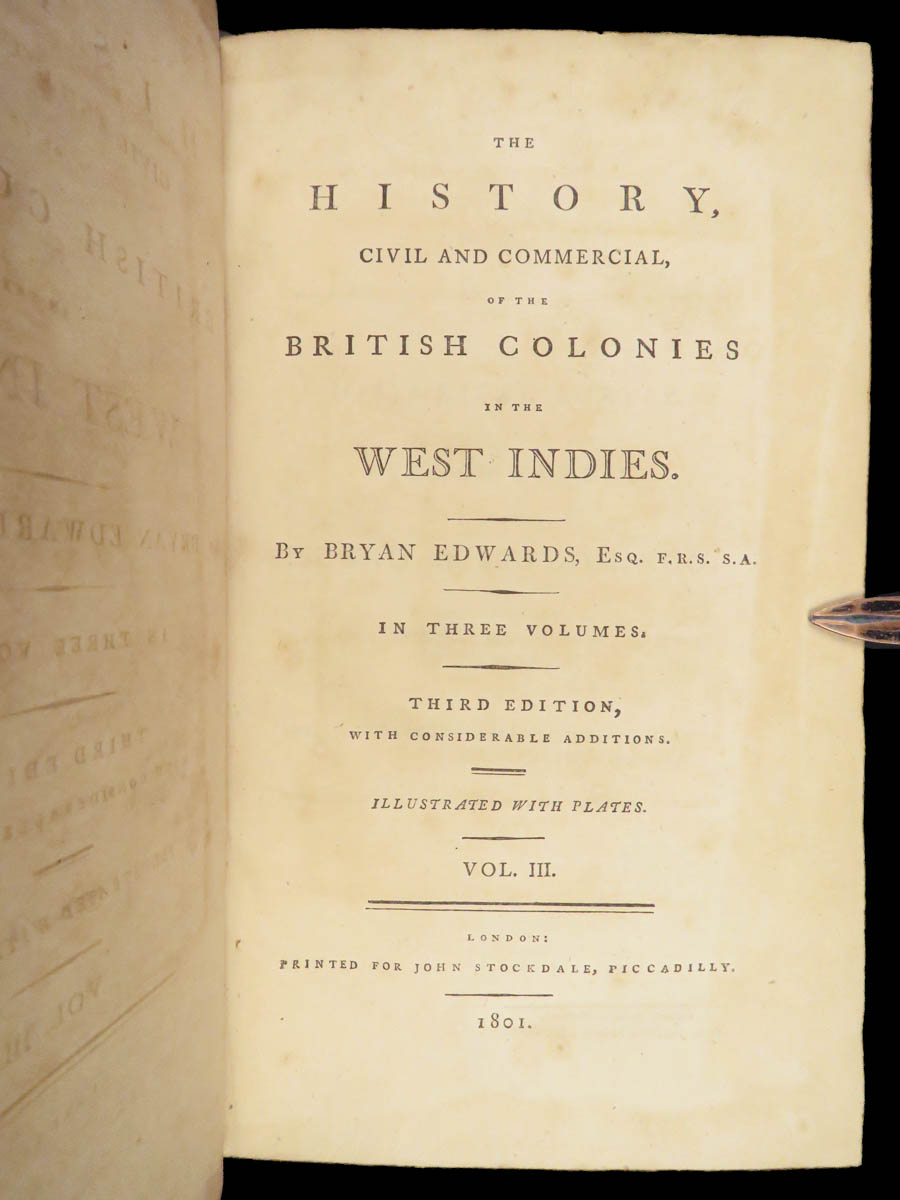 THE
HISTORY,
CIVIL AND COMMERCIAL,
OF THE
BRITISH COLONIES
IN THE
WEST INDIES.
By BRYAN EDWARDS, Esq. F.R.S. S.A.
IN THREE VOLUMES.
THIRD EDITION,
WITH CONSIDERABLE ADDITIONS.
ILLUSTRATED WITH PLATES.
VOL. III.
LONDON:
PRINTED FOR JOHN STOCKDALE, PICCADILLY.
1801.